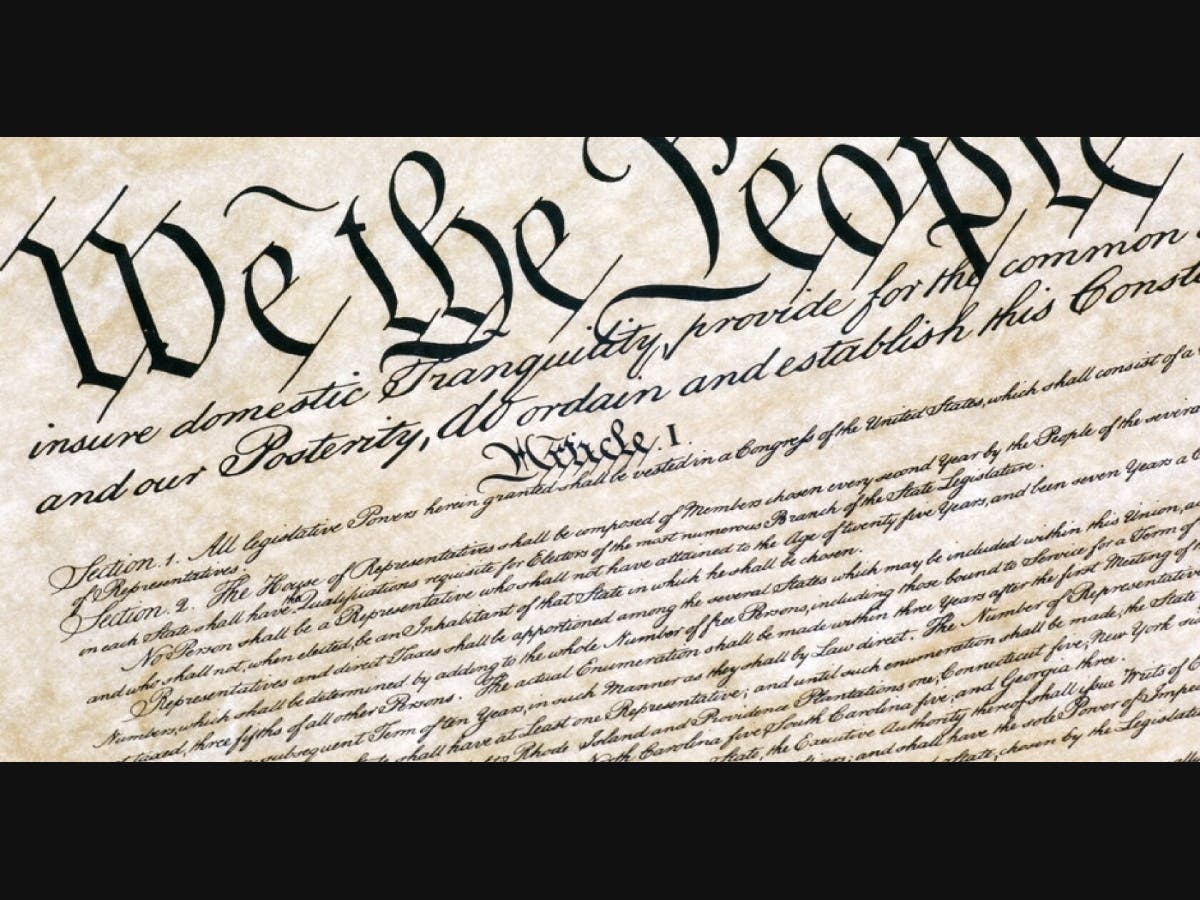 We the People
insure domestic Tranquility, provide for the common
and our Posterity, do ordain and establish this Const
Article. I.
Section. 1. All legislative Powers herein granted shall be vested in a Congress of the United States, which shall consist of a
of Representatives.
Section. 2. The House of Representatives shall be composed of Members chosen every second Year by the People of the several
in each State shall have the Qualifications requisite for Electors of the most numerous Branch of the State Legislature.
No Person shall be a Representative who shall not have attained to the Age of twenty five Years, and been seven Years a
and who shall not, when elected, be an Inhabitant of that State in which he shall be chosen.
Representatives and direct Taxes shall be apportioned among the several States which may be included within this Union,
Numbers, which shall be determined by adding to the whole Number of free Persons, including those bound to Service for a Term of
taxed, three fifths of all other Persons. The actual Enumeration shall be made within three Years after the first Meeting of
subsequent Term of ten Years, in such Manner as they shall by Law direct. The Number of Representatives
State shall have at Least one Representative; and until such enumeration shall be made, the State
Rhode Island and Providence Plantations one, Connecticut five, New York
North Carolina five, South Carolina five, and Georgia three.
State, the Executive Authority thereof shall issue Writs of
and shall have the sole Power of
State, chosen by the Legislature